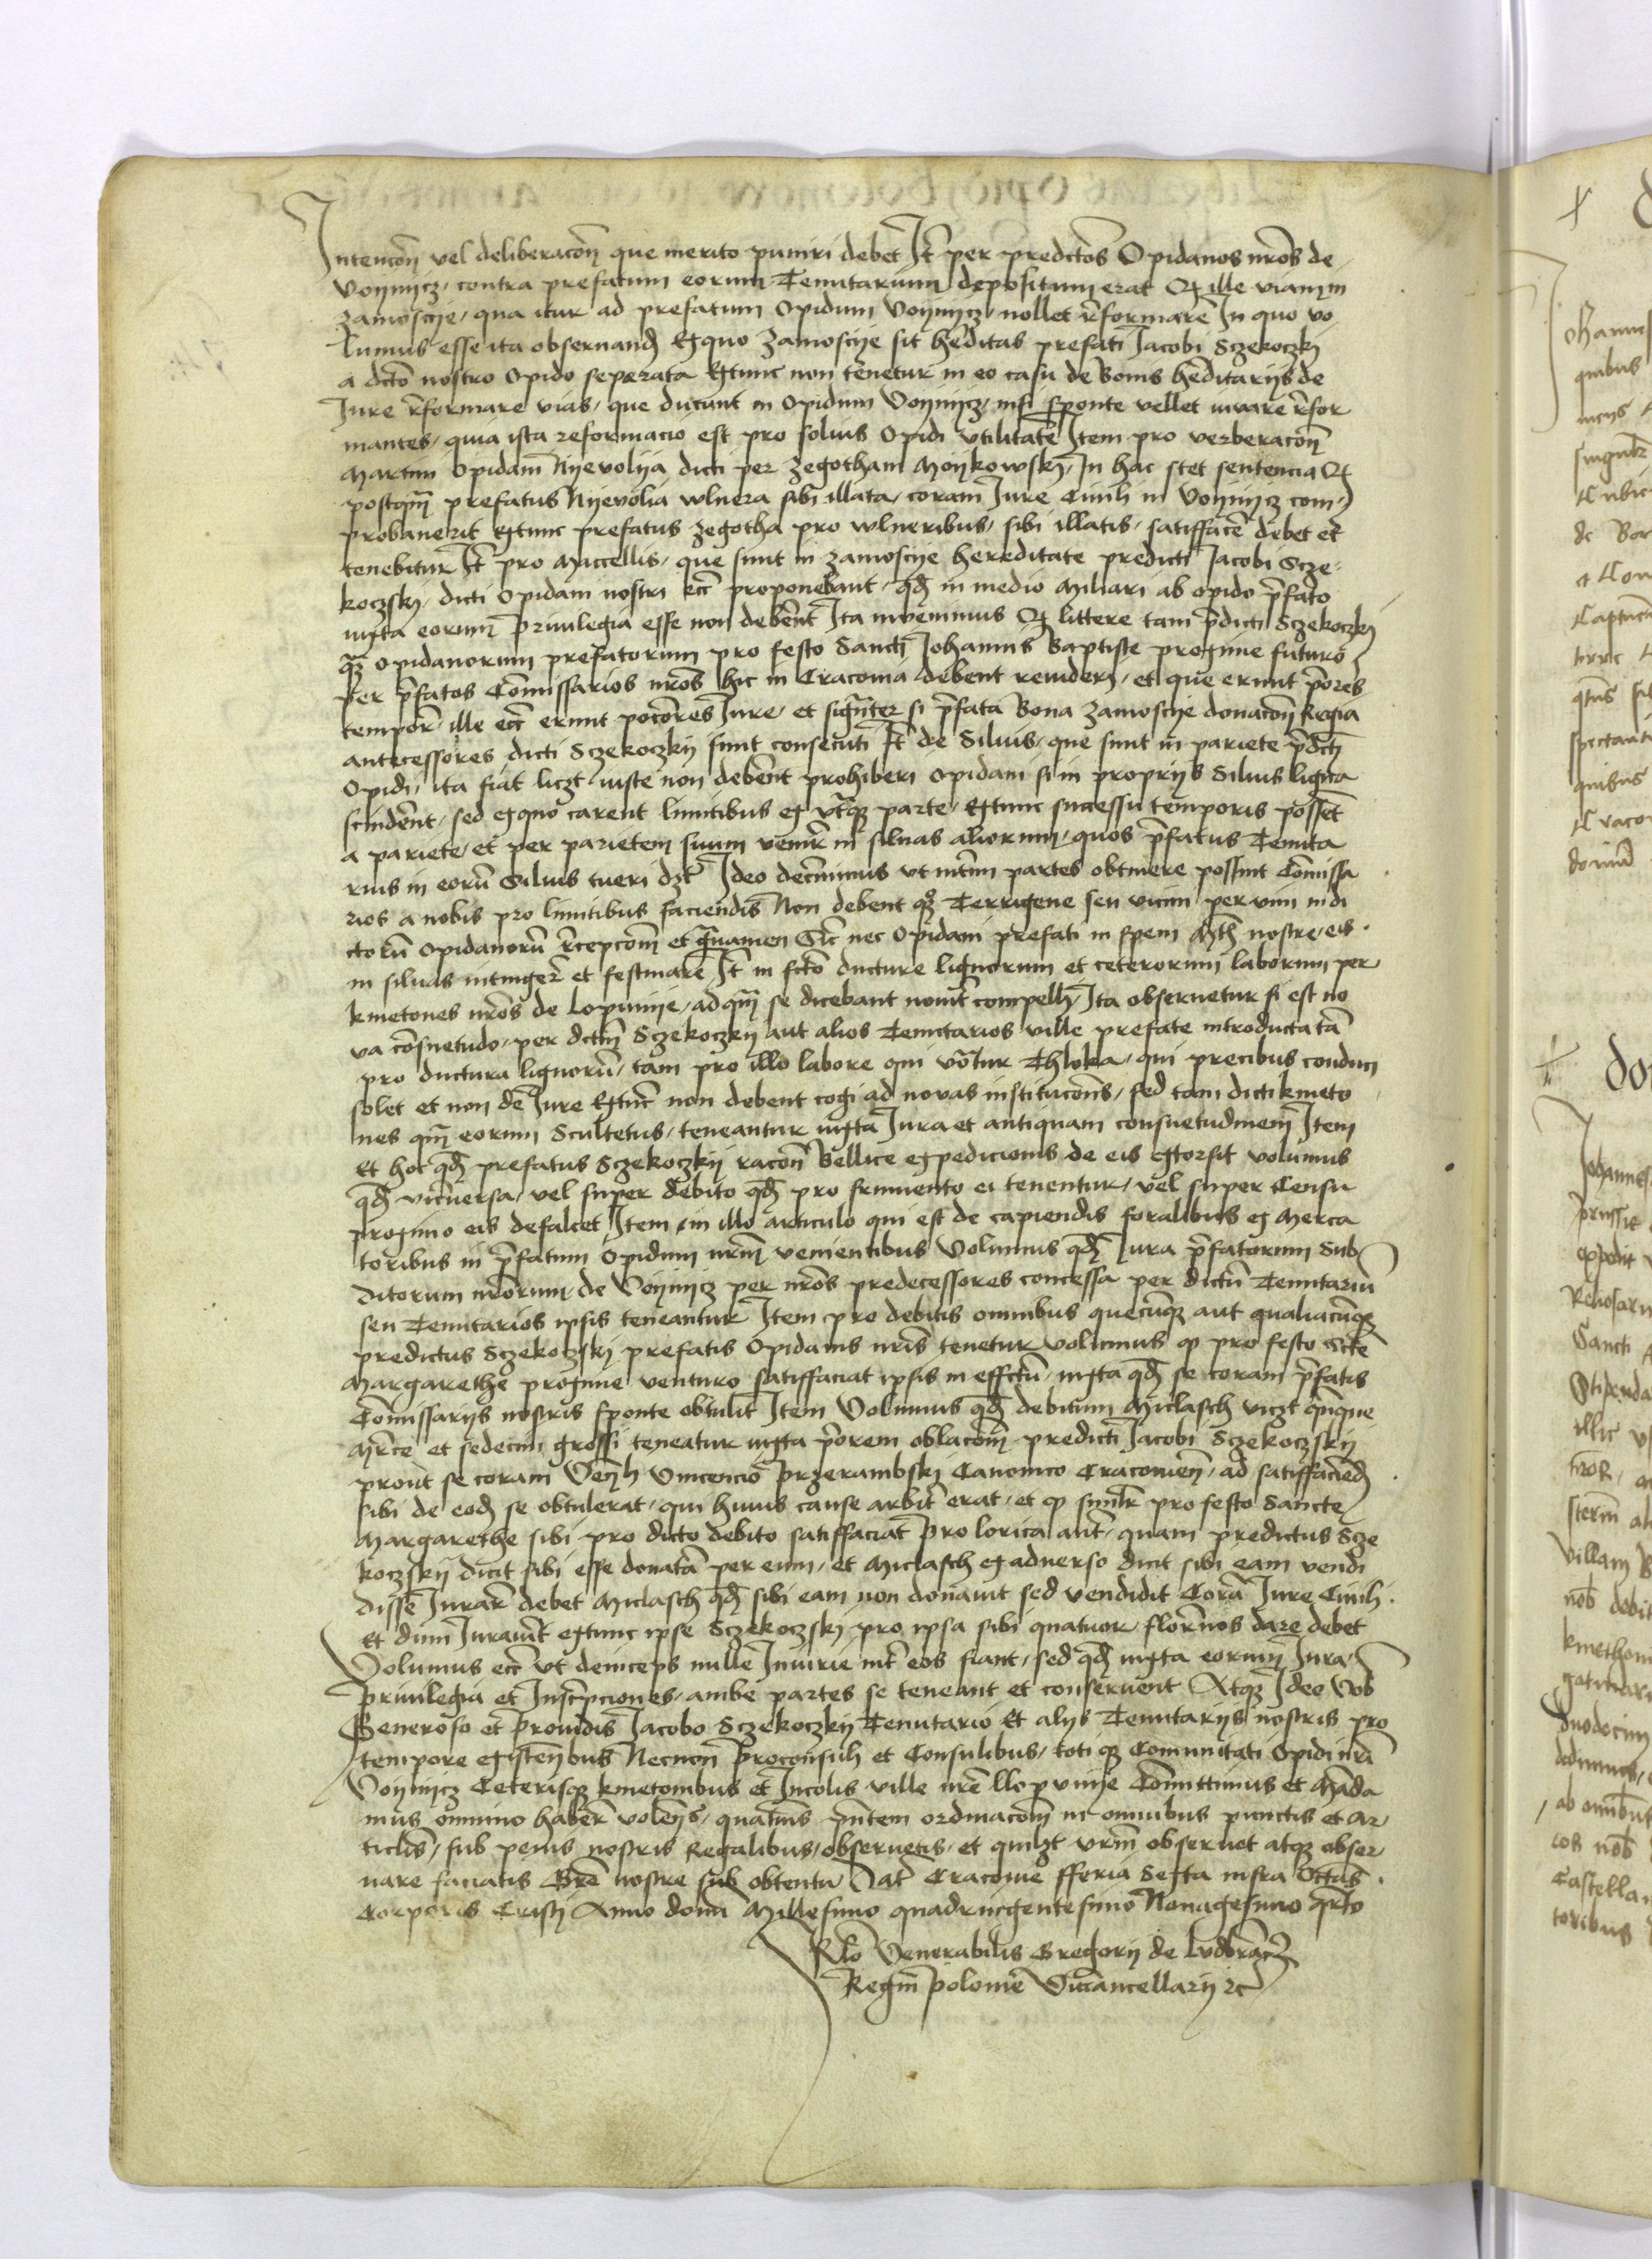 Intencōn vel deliberacōn que merito puniri debet It̄ per predictos Opidanos nr̄os de
Voynycz contra prefatum eorum Tenutarium depositum erat Qz ille viam in
Zamoscye qua itur ad prefatum Opidum Voynycz nollet r̄formare In quo vo
lumus esse ita obseruand̄ Exquo Zamoscye sit hēditas prefati Jacobi Sczekoczky
a dicto nostro opido seperata Extunc non tenetur in eo casu de Bonis hēditarijs de
Jure r̄formare vias que ducunt in Opidum Voynycz nisi sponte vellet iuuare r̄for
mantes quia ista reformacio est pro solius Opidi vtilitate Item pro verberacōn
Martini Opidani Nyevolya dicti per Zegotham Moykowsky In hac stet sentencia Qz
postqm̄ prefatus Nyevolia wlnera sibi illata coram Jure Ciuili in Voynycz com
probauerit Extunc prefatus Zegotha pro wlneribus sibi illatis satisfacē debet et
tenebitur It̄ pro Maccellis que sunt in Zamoscye hereditate predicti Jacobi Scze
koczky dicti Opidani nostri ecc̄ proponebant qd̄ in medio Miliari ab opido p̄fato
iuxta eorum Priuilegia esse non debent Ita inuenimus Qz littere tam p̄dicti Sczekoczky
qz̄ opidanorum prefatorum pro festo Sancti Johannis Baptiste proxime futuro
per p̄fatos Cōmissarios nr̄os hic in Cracouia debent reuideri et que erunt p̄ores
tempor̄ ille ecc̄ erunt pocōres Jure et sign̄ter si p̄fata Bona Zamoscye donacōn Regia
antecessores dicti Sczekoczky sunt consecuti It̄ de Siluis que sunt in pariete p̄dicti
Opidi ita fiat liczt iuste non debent prohiberi Opidani si in proprijs Siluis ligna
scindent sed exquo carent limitibus ex vtq̄ parte Extunc successu temporis possēt
a pariete et per parietem suum venir̄ in siluas aliorum quos p̄fatus Tenuta
rius in eorū Siluis tueri dz̄t Ideo decr̄nimus vt int̄im partes obtinere possint Cōmissa
rios a nobis pro limitibus faciendis Non debent qz Terrigene seu vicini per vim in di
ctorū opidanorū r̄cepcōm et gr̄auamen Sic nec Opidani prefati in spem Mt̄h nostre eis
in siluas intinger̄ et festinare It̄ in fcto ducture lignorum et ceterorum laborum per
kmetones nr̄os de Lopunye ad qm̄ se dicebant nouit̄ compelli Ita obseruetur si est no
va cōsuetudo per dictm̄ Sczekoczky aut alios Tenutarios ville prefate introducta tā
pro ductura lignorū tam pro illo labore qui vōtur Thloka qui precibus conduci
solet et non de Jure Extunc non debent cogi ad novas institucōns sed tam dicti kmeto
nes qm̄ eorum Scultetus teneantur iuxta Jura et antiquam consuetudinem Item
Et hoc qd̄ prefatus Sczekoczky racōn Bellice expedicionis de eis extorsit volumus
qd̄ viceuersa vel super debito qd̄ pro frumento ei tenentur vel super Censu
proximo eis defalcet Item in illo articulo qui est de capiendis foralibus ex Merca
toribus in p̄fatum Opidum nr̄m venientibus Volumus qd̄ Jura p̄fatorum Sub
ditorum nr̄orum de Voynycz per nr̄os predecessores concessa per dictū Tenutariū
seu Tenutarios ipsis teneantur Item pro debitis omnibus quecunqz aut qualiacunqz
predictus Sczekoczky prefatis Opidanis nr̄is tenetur volumus q̄ pro festo Scte
Margarethe proxime venturo satisfaciat ipsis in effctū iuxta qd̄ se coram p̄fatis
Cōmissarijs nostris sponte obtulit Item Volumus qd̄ debitum Miclasch viczt qn̄que
Mr̄ce et sedecim grossi teneatur iuxta p̄orem oblacōm predicti Jacobi Sczekoczsky
prout se coram Ven̄li Vincencio Przerambsky Canonico Cracouien̄ ad satisfaciēd
sibi de eod̄ se obtulerat qui huius cause arbit̄ erat et q̄ simlr̄ pro festo Sancte
Margarethe sibi pro dicto debito satisfaciat Pro lorica aut̄ quam predictus Scze
koczsky dicit sibi esse donatā per eum et Miclasch ex aduerso dicit sibi eam vendi
disse Jurar̄ debet Miclasch qd̄ sibi eam non donauit sed vendidit Corā Jure Ciuili
Et dum Jurauit̄ extunc ipse Sczekoczsky pro ipsa sibi quatuor flor̄nos dare debet
Volumus ecc̄ vt deinceps nulle Iniurie int̄ eos fiant sed qd̄ iuxta eorum Jura
Priuilegia et Inscrip̄ciones ambe partes se teneant et conseruent Atqz Ideo Vob̄
Generoso et Prouidis Jacobo Sczekoczky Tenutario Et alijs Tenutarijs nostris pro
tempore existen̄bus Necnon Proconsuli et Consulibus toti qz Comunitati Opidi nr̄i
Voynycz Ceterisqz kmetonibus et Incolis ville nr̄e Llopunye Cōmittimus et Māda
mus omnino haber̄ volen̄s quatn̄us p̄ntem ordinacōm in omnibus punctis et Ar
ticlis sub penis nostris Regalibus obseruetis et quilzt vr̄m obseruet atqz obser
uare faciatis Gr̄e nostre sub obtentu Dat̄ Cracouie fferia Sexta infra Octas
Corporis Cristi Anno domi Millesimo quadringentesimo Nonagesimo qr̄to
Rlō Venerabilis Gregorij de Ludbrancz
Regni Polonie Vicancellarij ec̄